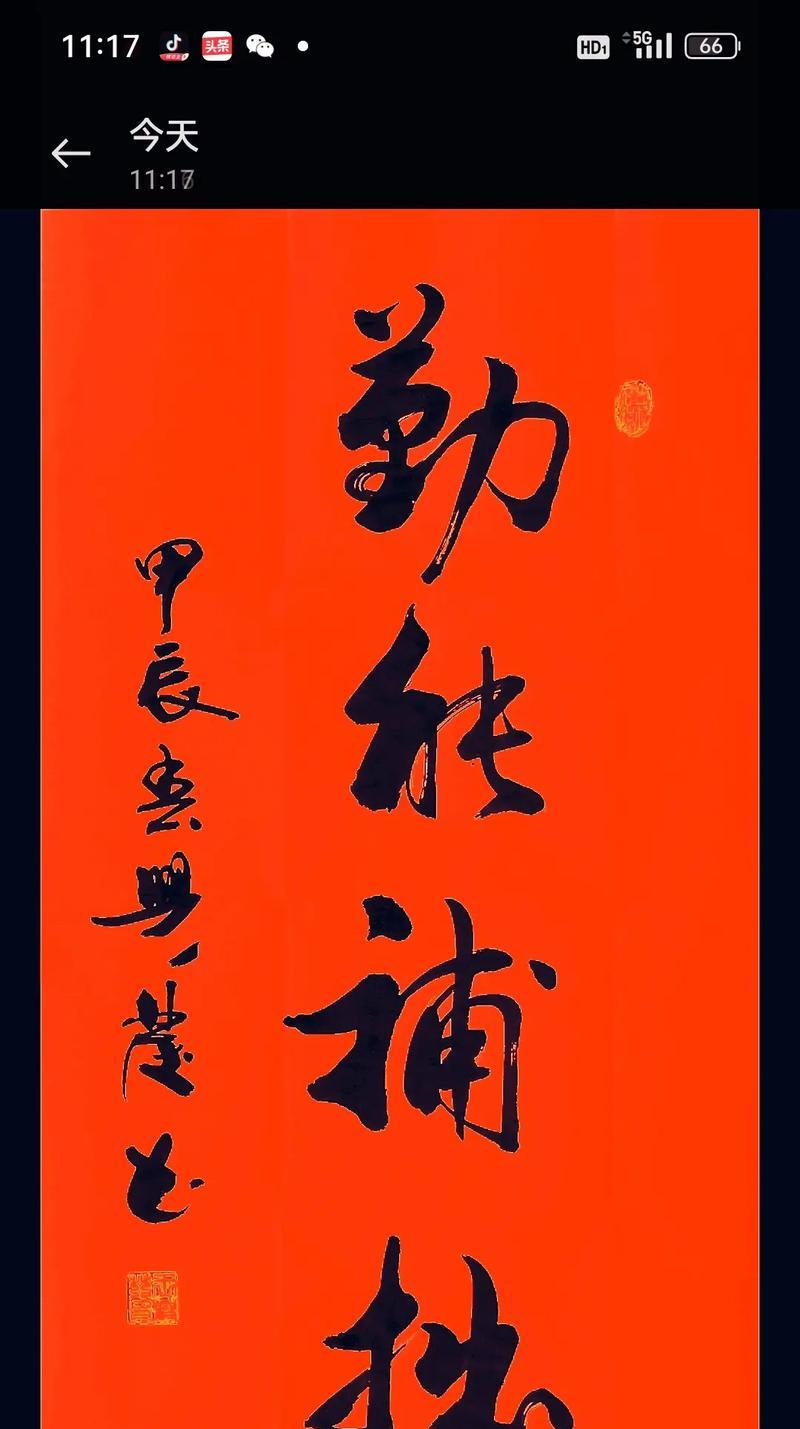 11:17 头条 HD1 5G 66
今天
11:17
勤能补拙
甲辰